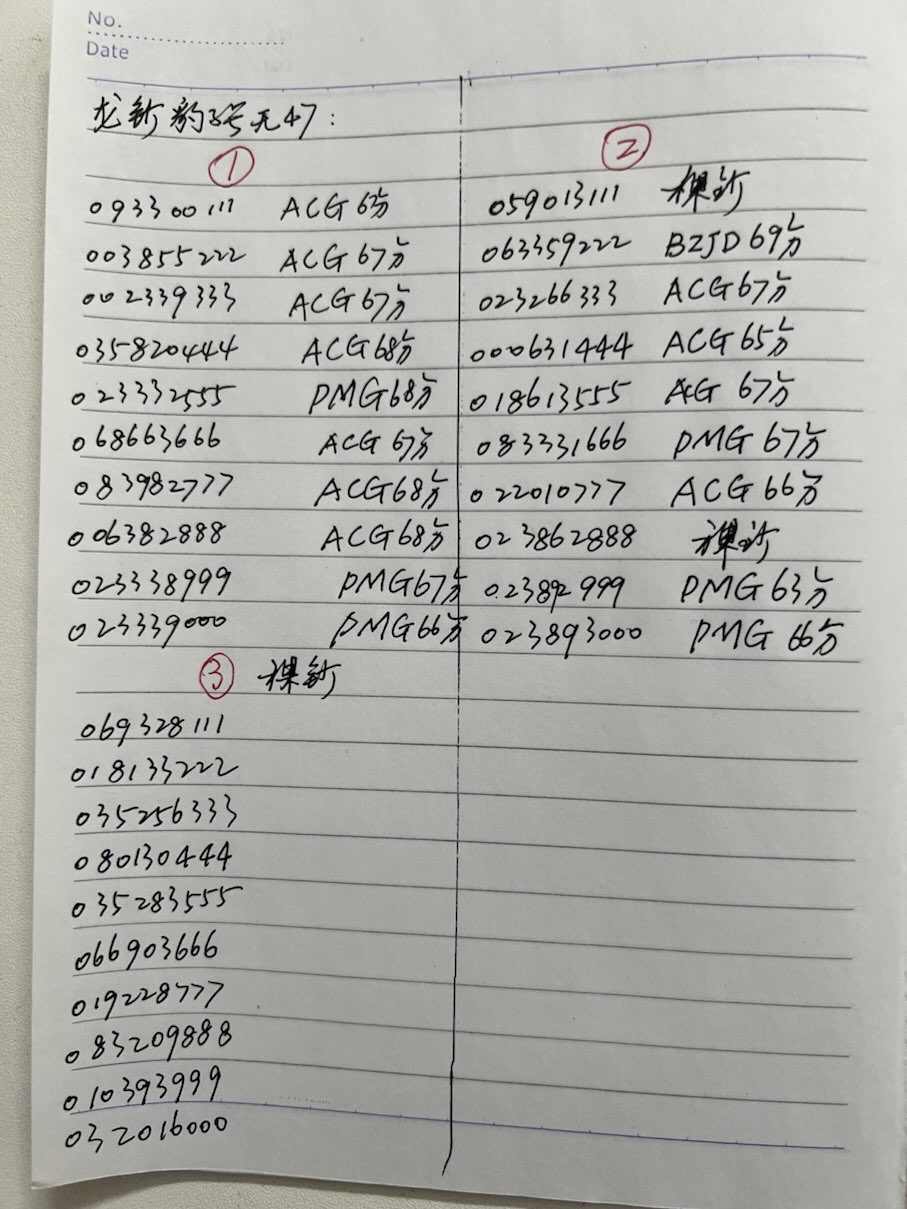 No.
Date
龙钞豹子号无47:
①
093300111 ACG 6分
003855222 ACG 67分
002339333 ACG 67分
035820444 ACG 68分
023332555 PMG 68分
068663666 ACG 67分
083982777 ACG 68分
006382888 ACG 68分
023338999 PMG 67分
023339000 PMG 66分
②
059013111 裸钞
063359222 BZJD 69分
023266333 ACG 67分
000631444 ACG 65分
018613555 ACG 67分
083331666 PMG 67分
022010777 ACG 66分
023862888 裸钞
023892999 PMG 63分
023893000 PMG 66分
③ 裸钞
069328111
018133222
035256333
080130444
035283555
066903666
019228777
083209888
010393999
032016000